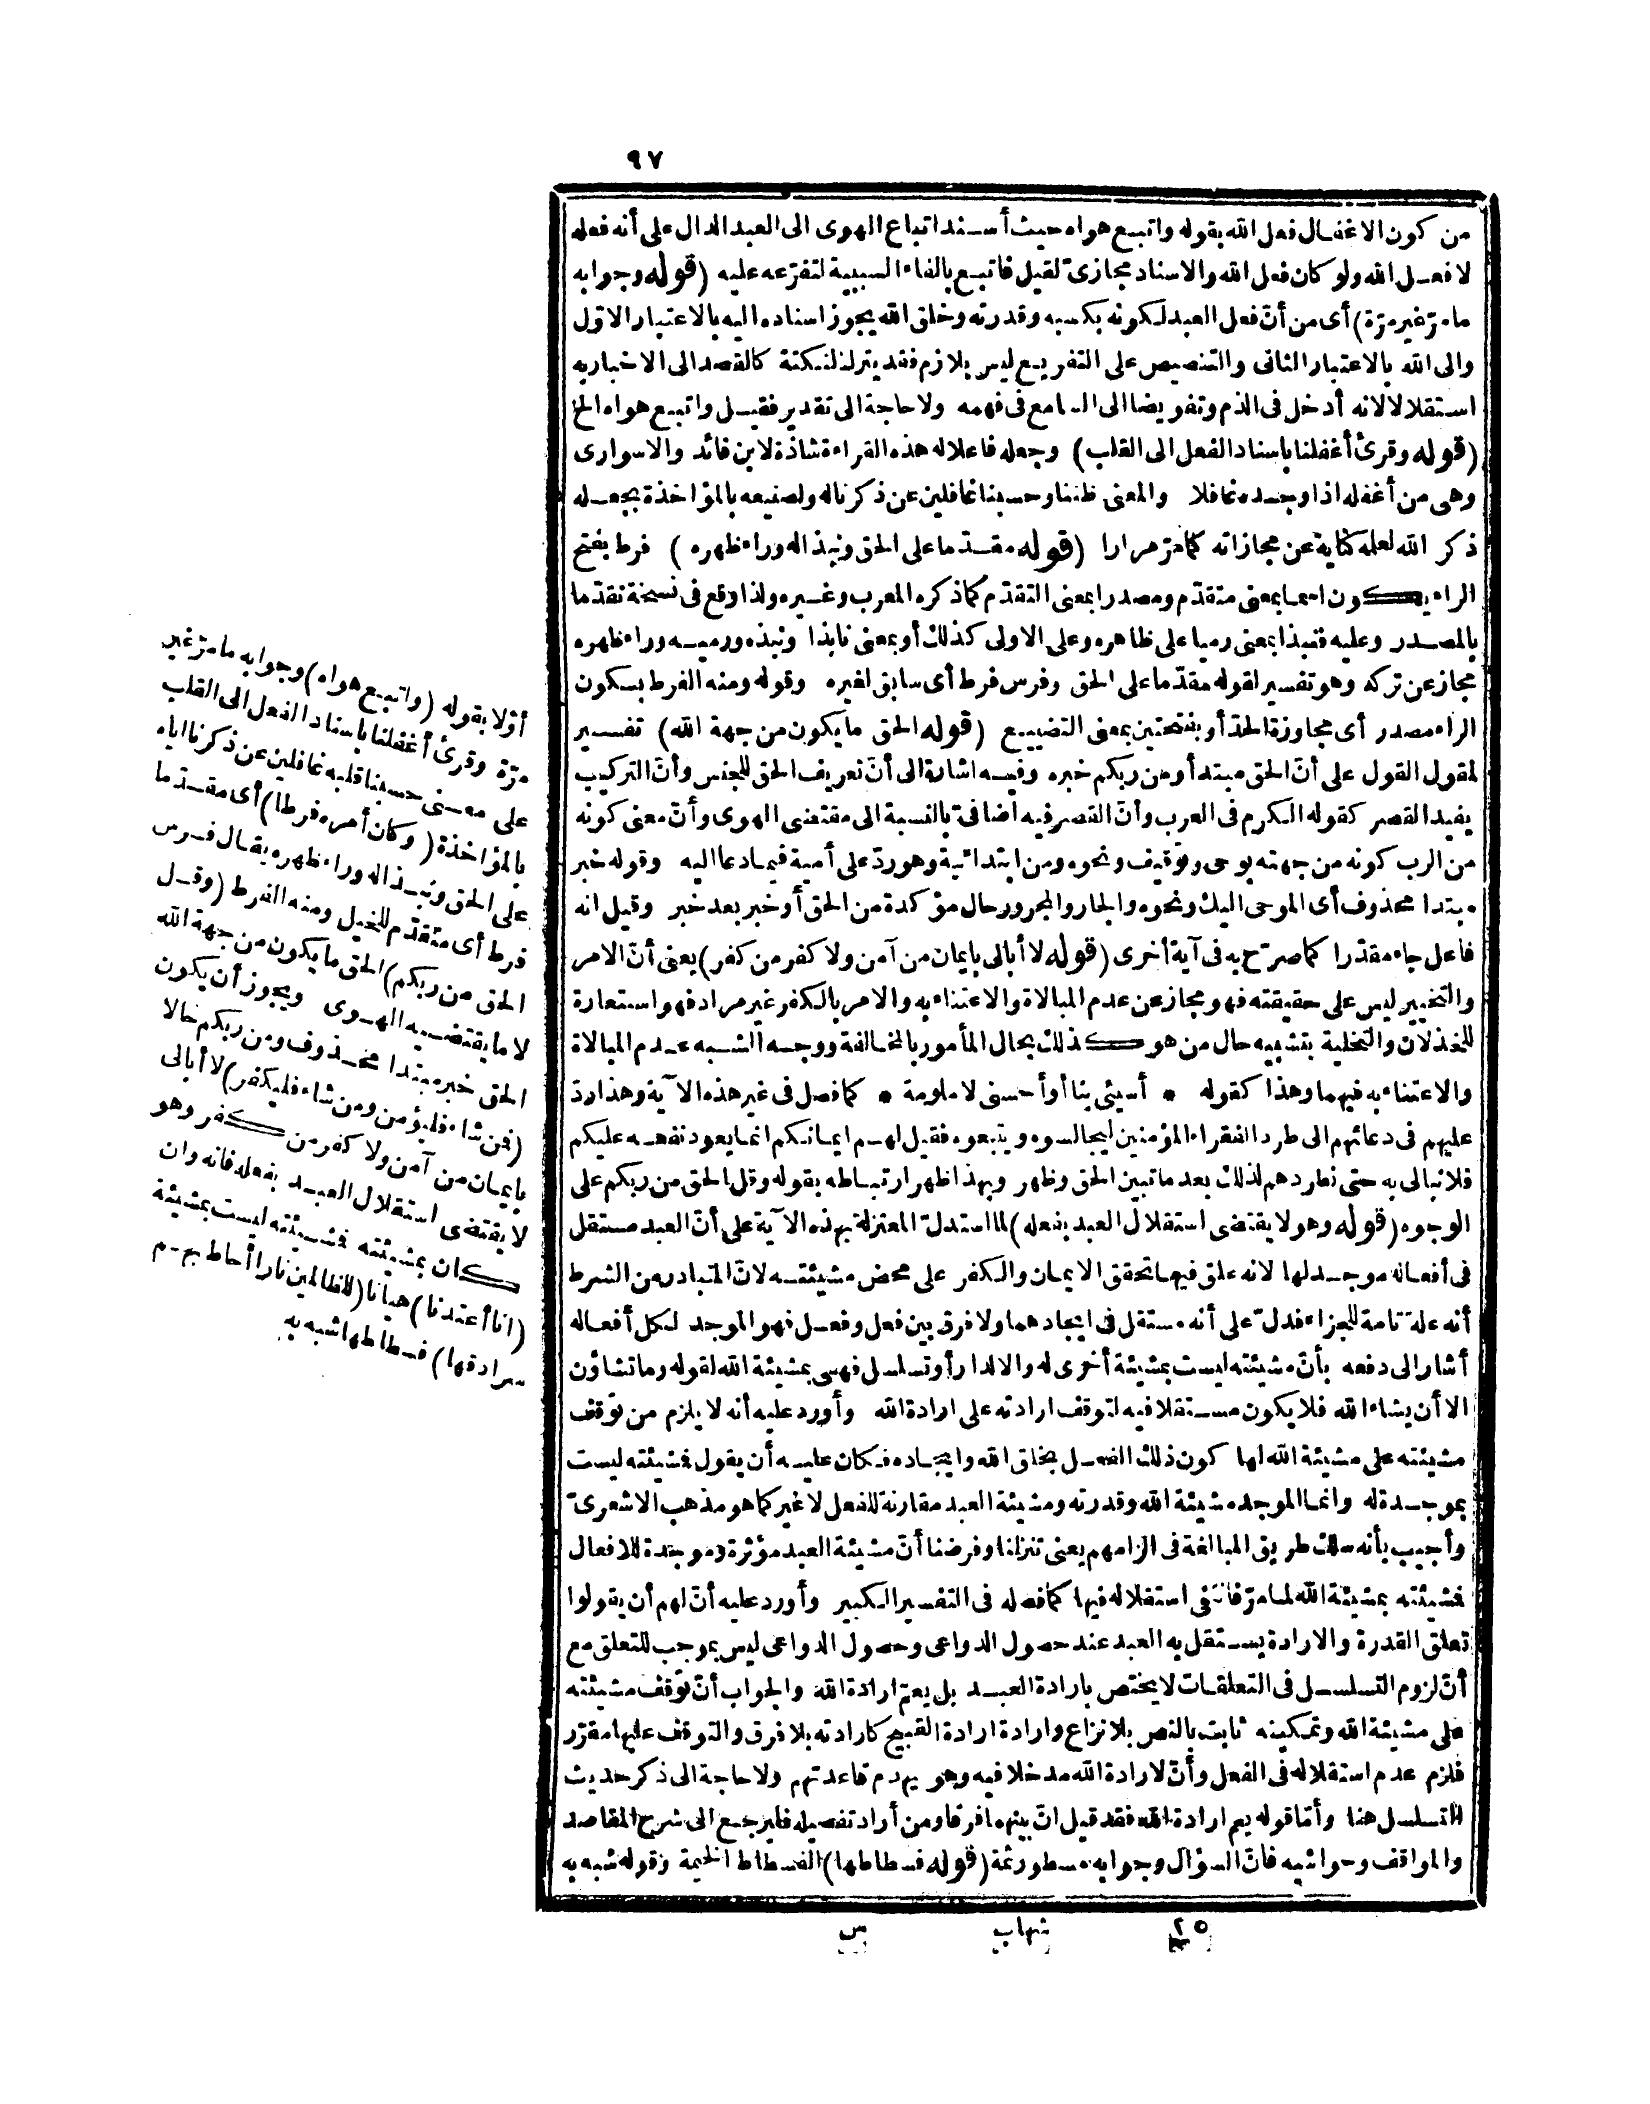 ٩٧
من كون الاغفال فعل الله بقوله واتبع هواه حيث أسند اتباع الهوى الى العبد الدال على أنه فعله
لا فعل الله ولو كان فعل الله والاسناد مجازىّ لقيل فاتبع بالفاء السببية لتفرّعه عليه (قوله وجوابه
ما مرّ غير مرّة) أى من أنّ فعل العبد لكونه بكسبه وقدرته وخلق الله يجوز اسناده اليه بالاعتبار الاوّل
والى الله بالاعتبار الثانى والتنصيص على التفريع ليس بلازم فقد يترك لنكتة كالقصد الى الاخبار به
استقلالا لانه أدخل فى الذم وتفويضا الى السامع فى فهمه ولا حاجة الى تقدير فقيل واتبع هواه الخ
(قوله وقرئ أغفلنا باسناد الفعل الى القلب) وجعله فاعلا له هذه القراءة شاذة لابن فائد والاسوارى
وهى من أغفله اذا وجده غافلا والمعنى ظننا وحسبنا غافلين عن ذكرنا له ولصنيعه بالمؤاخذة بجعله
ذكر الله لعله كناية عن مجازاته كما مرّ مرارا (قوله مقدّما على الحق ونبذا له وراء ظهره) فرط بفتح
الراء يكون اسما بمعنى متقدّم ومصدرا بمعنى التقدّم كما ذكره المعرب وغيره ولذا وقع فى نسخة تقدّما
بالمصدر وعليه فنبذا بمعنى رميا على ظاهره وعلى الاولى كذلك أو بمعنى نابذا ونبذه ورميه وراء ظهره
مجاز عن تركه وهو تفسير لقوله مقدّما على الحق وفرس فرط أى سابق لغيره وقوله ومنه الفرط بسكون
الراء مصدر أى مجاوزة الحدّ أو بفتحتين بمعنى التضييع (قوله الحق ما يكون من جهة الله) تفسير
لمقول القول على أنّ الحق مبتدأ ومن ربكم خبره وفيه اشارة الى أنّ تعريف الحق للجنس وأنّ التركيب
يفيد القصر كقوله الكرم فى العرب وأنّ القصر فيه اضافىّ بالنسبة الى مقتضى الهوى وأنّ معنى كونه
من الرب كونه من جهته بوحى وتوقيف ونحوه ومن ابتدائية وهو ردّ على أمية فيما دعا اليه وقوله خبر
مبتدا محذوف أى الموحى اليك ونحوه والجار والمجرور حال مؤكدة من الحق أو خبر بعد خبر وقيل انه
فاعل جاء مقدّرا كما صرّح به فى آية أخرى (قوله لا أبالى بايمان من آمن ولا كفر من كفر) يعنى أنّ الامر
والتخيير ليس على حقيقته فهو مجاز عن عدم المبالاة والاعتناء به والامر بالكفر غير مراد فهو استعارة
للخذلان والتخلية بتشبيه حال من هو كذلك بحال المأمور بالمخالفة ووجه الشبه عدم المبالاة
والاعتناء به فيهما وهذا كقوله * أسيئى بنا أو أحسنى لا ملومة * كما فصل فى غير هذه الآية وهذا ردّ
عليهم فى دعائهم الى طرد الفقراء المؤمنين ليجالسوه ويتبعوه فقيل لهم ايمانكم انما يعود نفعه عليكم
فلا نبالى به حتى نطردهم لذلك بعد ما تبين الحق وظهر وبهذا ظهر ارتباطه بقوله وقل الحق من ربكم على
الوجوه (قوله وهو لا يقتضى استقلال العبد بفعله) لما استدلّ المعتزلة بهذه الآية على أنّ العبد مستقل
فى أفعاله موجد لها لانه علق فيها تحقق الايمان والكفر على محض مشيئته لانّ المتبادر من الشرط
أنه علة تامة للجزاء فدلّ على أنه مستقل فى ايجادهما ولا فرق بين فعل وفعل فهو الموجد لكل أفعاله
أشار الى دفعه بأنّ مشيئته ليست بمشيئة أخرى له والا لدار أو تسلسل فهى بمشيئة الله لقوله وما تشاؤن
الا أن يشاء الله فلا يكون مستقلا فيه لتوقف ارادته على ارادة الله وأورد عليه أنه لا يلزم من توقف
مشيئته على مشيئة الله لها كون ذلك الفعل بخلق الله وايجاده فكان عليه أن يقول فمشيئته ليست
بموجدة له وانما الموجد مشيئة الله وقدرته ومشيئة العبد مقارنة للفعل لا غير كما هو مذهب الاشعرىّ
وأجيب بأنه سلك طريق المبالغة فى الزامهم يعنى تنزلنا وفرضنا أنّ مشيئة العبد مؤثرة وموجدة للافعال
فمشيئته بمشيئة الله لما مرّ فانتفى استقلاله فيها كما فصله فى التفسير الكبير وأورد عليه أنّ لهم أن يقولوا
تعلق القدرة والارادة يستقل به العبد عند حصول الدواعى وحصول الدواعى ليس بموجب للتعلق مع
أنّ لزوم التسلسل فى التعلقات لا يختص بارادة العبد بل يعمّ ارادة الله والجواب أنّ توقف مشيئته
على مشيئة الله وتمكينه ثابت بالنص بلا نزاع وارادة ارادة القبيح كارادته بلا فرق والتوقف عليها مقرّر
فلزم عدم استقلاله فى الفعل وأنّ لارادة الله مدخلا فيه وهو يهدم قاعدتهم ولا حاجة الى ذكر حديث
التسلسل هنا وأمّا قوله يعم ارادة الله فقد قيل انّ بينهما فرقا ومن أراد تفصيله فليرجع الى شرح المقاصد
والمواقف وحواشيه فانّ السؤال وجوابه مسطور ثمة (قوله فسطاطها) الفسطاط الخيمة وقوله شبه به
أوّلا بقوله (واتبع هواه) وجوابه ما مرّ غير
مرّة وقرئ أغفلنا باسناد الفعل الى القلب
على معنى حسبنا قلبه غافلين عن ذكرنا اياه
بالمؤاخذة (وكان أمره فرطا) أى مقدّما
على الحق ونبذا له وراء ظهره يقال فرس
فرط أى متقدّم للخيل ومنه الفرط (وقل
الحق من ربكم) الحق ما يكون من جهة الله
لا ما يقتضيه الهوى ويجوز أن يكون
الحق خبر مبتدا محذوف ومن ربكم حالا
(فمن شاء فليؤمن ومن شاء فليكفر) لا أبالى
بايمان من آمن ولا كفر من كفر وهو
لا يقتضى استقلال العبد بفعله فانه وان
كان بمشيئته فمشيئته ليست بمشيئة
(انا أعتدنا) هيأنا (للظالمين نارا أحاط بهم
سرادقها) فسطاطها شبه به
٢٥ شهاب س